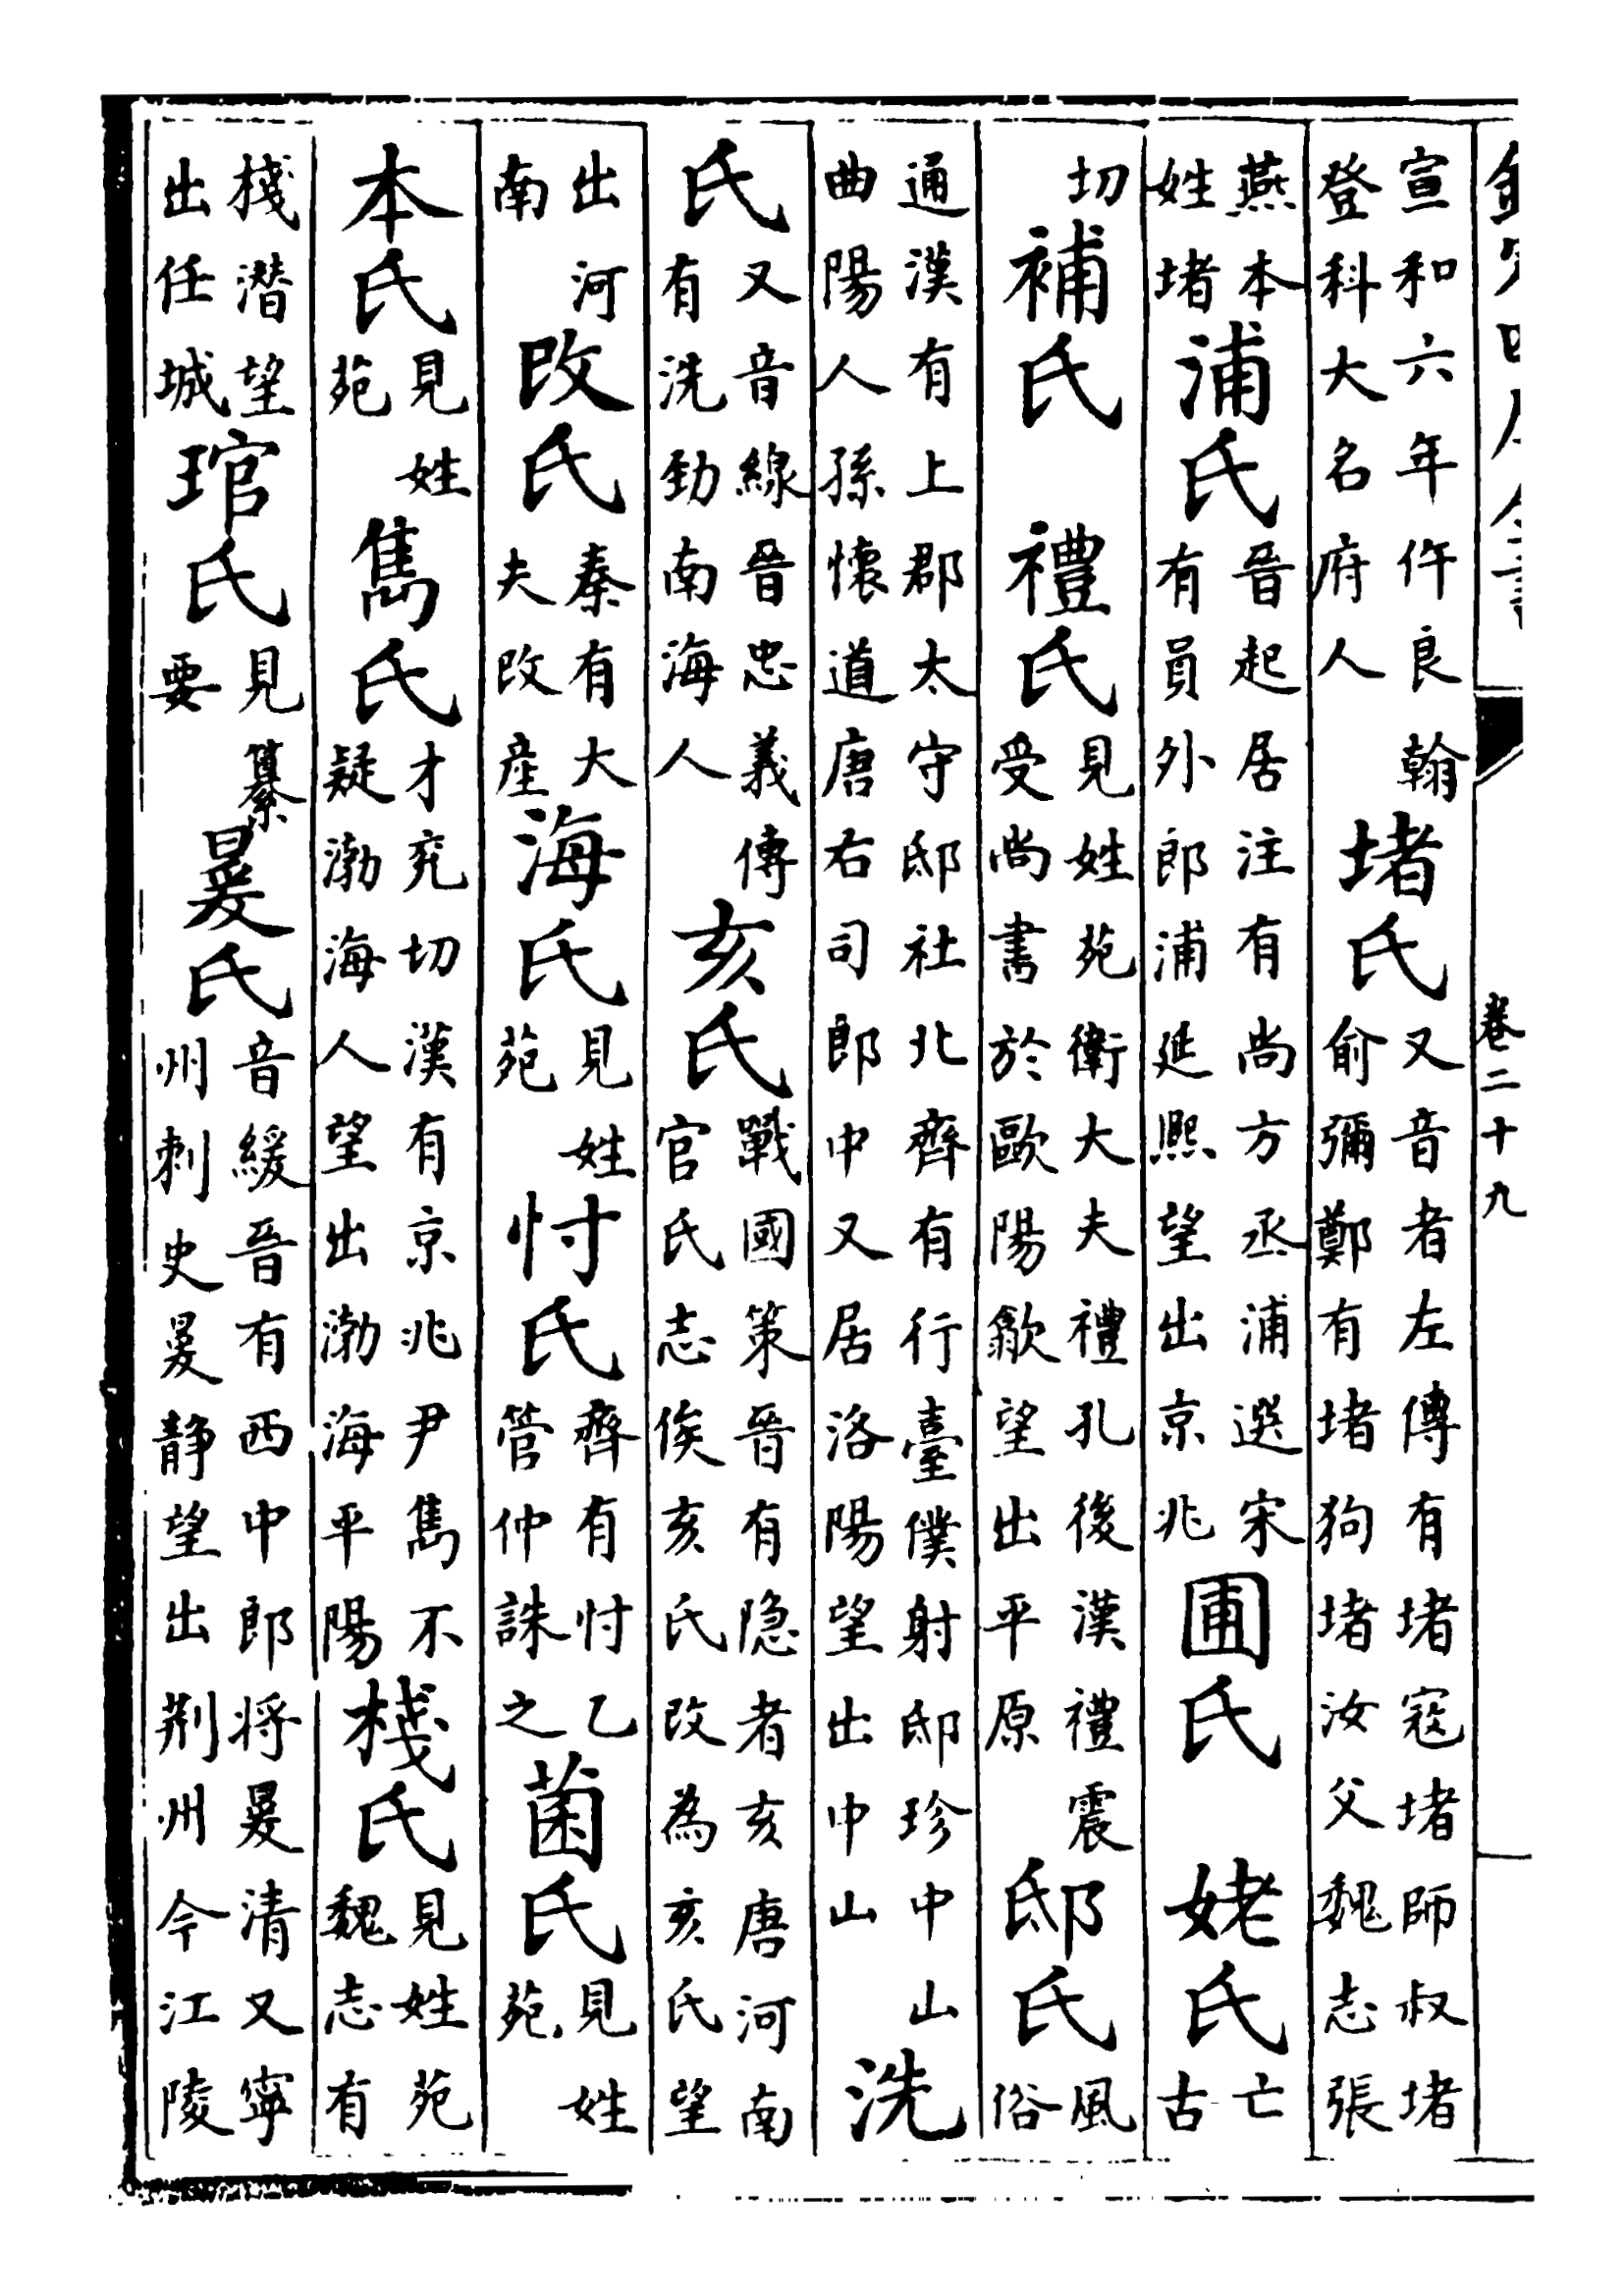 欽定四庫全書 卷二十九
宣和六年仵良翰登科大名府人堵氏又音者左傳有堵寇堵師叔堵俞彌鄭有堵狗堵汝父魏志張
燕本姓堵浦氏晉起居注有尚方丞浦選宋有員外郎浦延熙望出京兆圃氏姥氏亡古
切補氏禮氏見姓苑衛大夫禮孔後漢禮震受尚書於歐陽歙望出平原邸氏風俗
通漢有上郡太守邸社北齊有行臺僕射邸珍中山曲陽人孫懷道唐右司郎中又居洛陽望出中山洗
氏又音線晉忠義傳有洗勁南海人亥氏戰國策晉有隐者亥唐河南官氏志俟亥氏改為亥氏望
出河南改氏秦有大夫改産海氏見姓苑忖氏齊有忖乙管仲誅之菌氏見姓苑
本氏見姓苑雋氏才兖切漢有京兆尹雋不疑渤海人望出渤海平陽棧氏見姓苑魏志有
棧潛望出任城琯氏見纂要㬊氏音緩晉有西中郎将㬊清又寧州刺史㬊静望出荆州今江陵